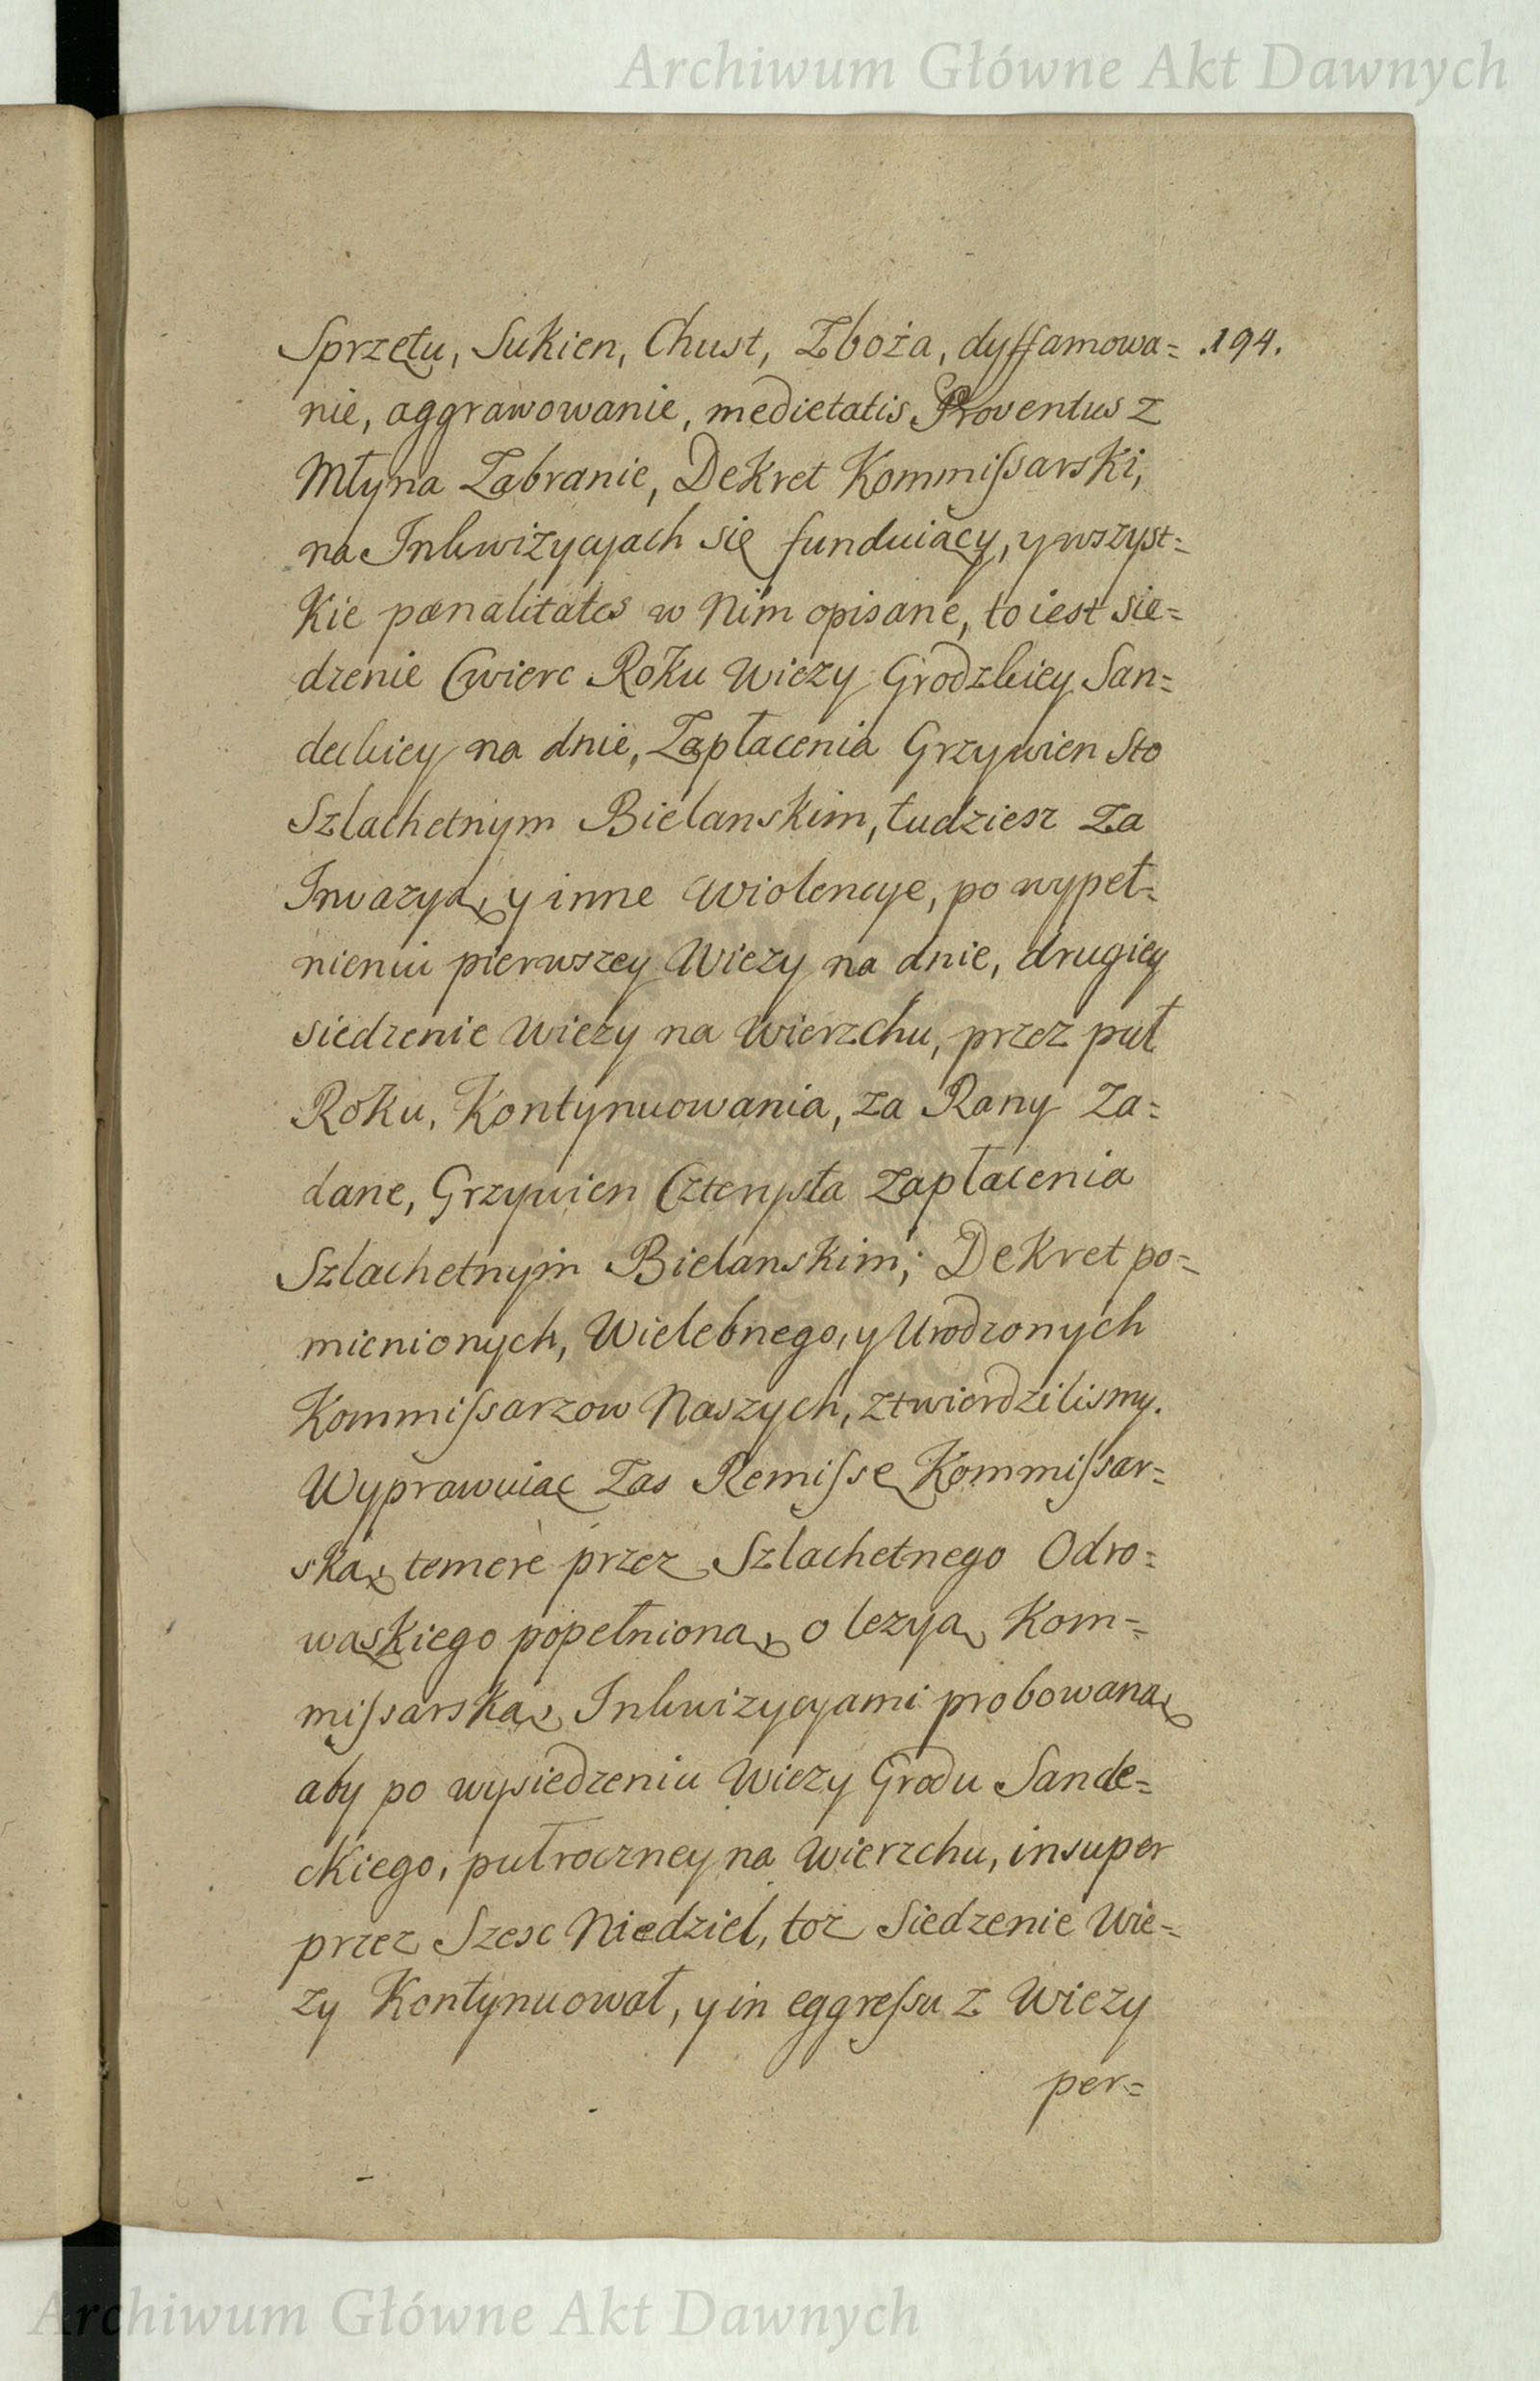 Archiwum Główne Akt Dawnych
Sprzętu, Sukien, Chust, Zboża, dyffamowa= .194.
nie, aggrawowanie, medietatis Proventus z
Młyna Zabranie, Dekret Kommiſsarski,
na Inkwizycjach się funduiący, y wszyst=
kie pœnalitates w Nim opisane, to iest sie=
dzenie Cwierc Roku Wiezy Grodzkiey San=
deckiey na dnie, Zapłacenia Grzywien Sto
Szlachetnym Bielanskim, tudziesz za
Inwazyą, y inne Wiolencye, po wypeł=
nieniu pierwszey Wiezy na dnie, drugiey
siedzenie Wiezy na Wierzchu, przez puł
Roku, Kontynuowania, za Rany Za=
dane, Grzywien Czterysta Zapłacenia
Szlachetnym Bielanskim; Dekret po=
mienionych, Wielebnego, y Urodzonych
Kommiſsarzow Naszych, ztwierdzilismy.
Wyprawuiąc Zas Remiſsę Kommiſsar=
ską, temere przez Szlachetnego Odro=
wąskiego popełnioną, o lezyą, Kom=
miſsarską, Inkwizycyami probowaną,
aby po wysiedzeniu Wiezy Grodu Sande=
ckiego, pułroczney na Wierzchu, insuper
przez Szesc Niedziel, toz Siedzenie Wie=
zy Kontynuował, y in eggreſsu z Wiezy
per=
Archiwum Główne Akt Dawnych